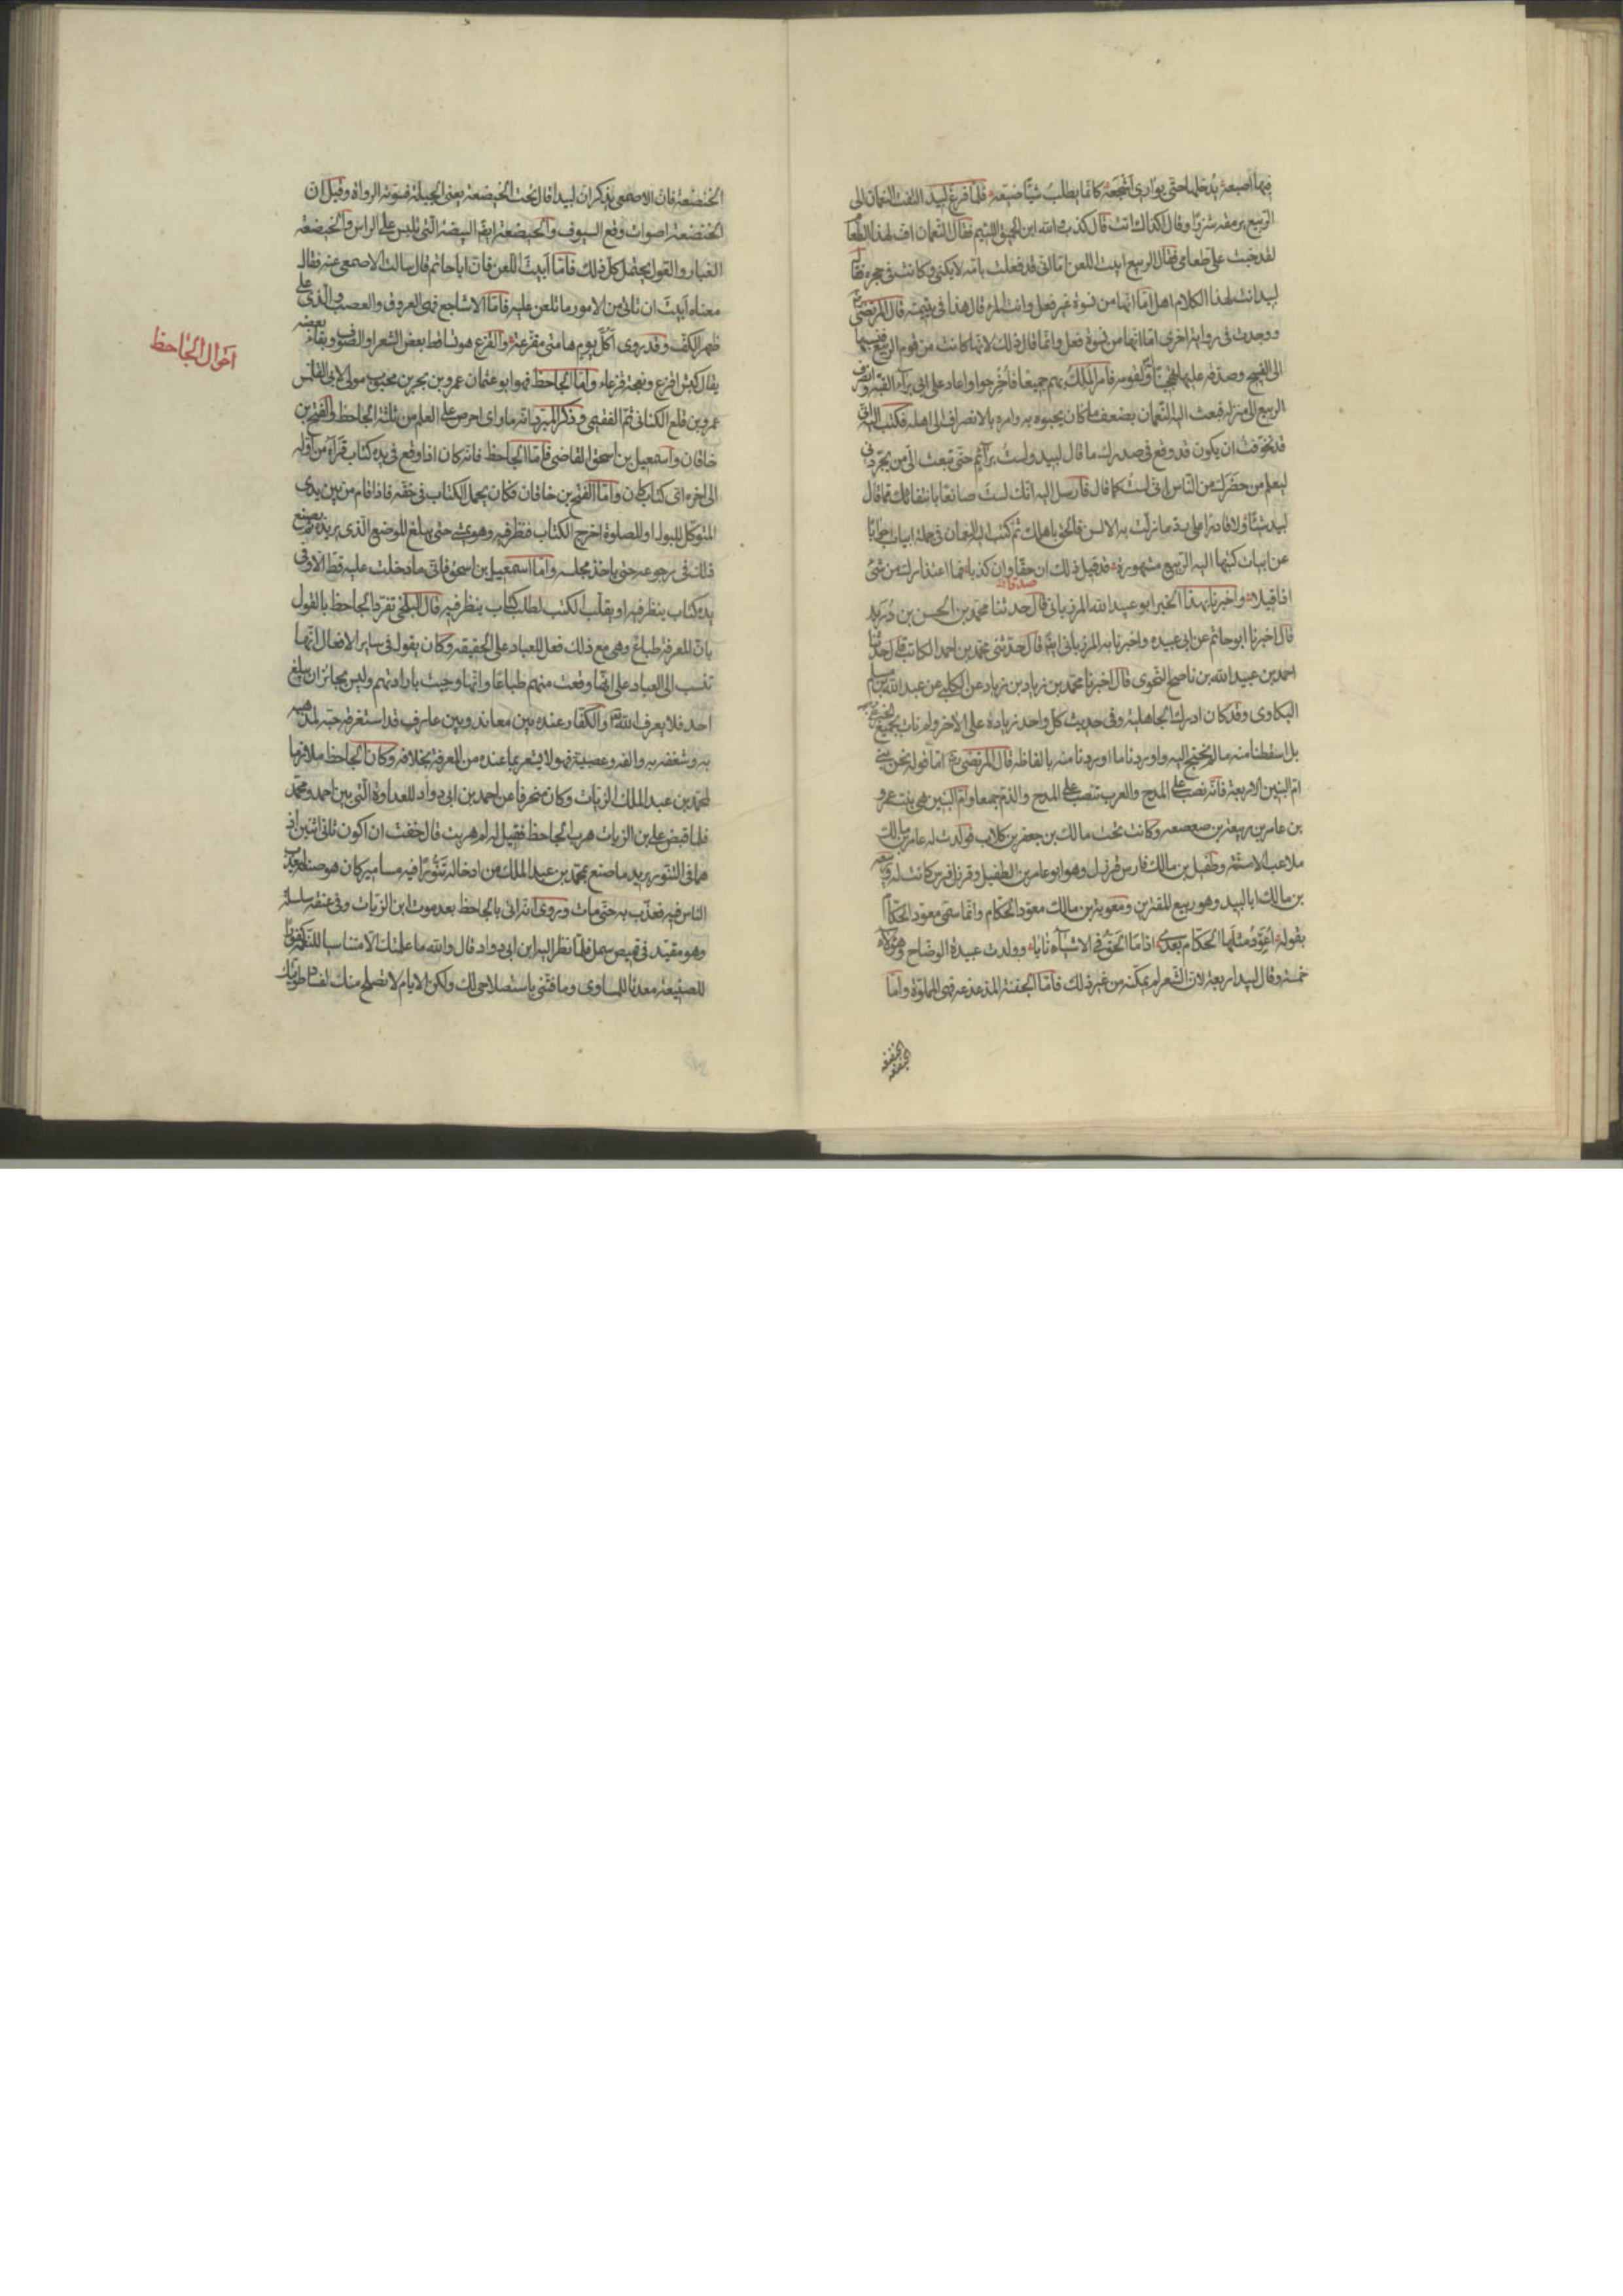 فيها اصبعه يُدخلها حتى يوارى اَشجَعه كانما يطلب شيئا ضيّعه فلما فرغ لبيد التفت النعمان الى
الربيع يرمقه شزرًا وقال اكذاك انت قال كذب والله ابن الحمق اللئيم فقال النعمان اف لهذا الطعام
لقد خبث علىّ طعامى فقال الربيع ابيت اللعن اما انى قد فعلت بامه لا يكنى وكانت فى حجره فقال
لبيد انت لهذا الكلام اهل اما انها من نسوة غير فعل وانت المرء قال هذا فى يتيمته قال المرتضى
ووجدت فى رواية اخرى اما انها من نسوة فعل وانما قال ذلك لانها كانت من قوم الربيع فنسبها
الى القبيح وصدقه عليها تهجينا له ولقومه فامر الملك بهم جميعا فاُخرجوا واعاد على ابى براء القبة وانصرف
الربيع الى منزله فبعث اليه النعمان بضعف ما كان يحبوه به وامره بالانصراف الى اهله فكتب اليه انى
قد تخوفت ان يكون قد وقع فى صدرك ما قال لبيد ولست برائم حتى تبعث الىّ من يجردنى
ليعلم من حضرك من الناس انى لست كما قال فارسل اليه انك لست صانعا بانتفائك مما قال
لبيد شيئا ولا قادرا على رد ما زلّت به الالسن فالحق باهلك ثم كتب اليه النعمان فى جملة ابيات جوابا
عن ابيات كتبها اليه الربيع مشهورة قد قيل ذلك ان حقا وان كذبا فما اعتذارك من شىء
اذا قيلا واخبرنا بهذا الخبر ابو عبيد الله المرزبانى قال حدثنا محمد بن الحسن بن دُريد
قال اخبرنا ابو حاتم عن ابى عبيده واخبرنا به المرزبانى ايضا قال حدّثنى محمد بن احمد الكاتب قال حدثنا
احمد بن عبيد الله بن ناصح النحوى قال اخبرنا محمد بن زياد بن زياد عن الكلبى عن عبد الله بن مسلم
البكاوى وقد كان ادرك الجاهلية وفى حديث كل واحد زيادة على الاخر ولم نات بجميع الخبر على وجهه
بل اسقطنا منه ما لم نحتج اليه واوردنا ما اوردنا منه بالفاظه قال المرتضى ره امّا قوله نحن بنى
ام البنين الاربعة فانه نصب على المدح والعرب تنصب على المدح والذم جميعا وام البنين هى بنت عمرو
بن عامر بن ربيعة بن صعصعه وكانت تحت مالك بن جعفر بن كلاب فولدت له عامر بن مالك
ملاعب الاسنّة وطفيل بن مالك فارس قرزل وهو ابو عامر بن الطفيل وقرزل فرس كانت له وربيعه
بن مالك ابا لبيد وهو ربيع المقترين ومعوية بن مالك معود الحكام وانما سمى معود الحكام
بقوله اُعوّد مثلها الحكام بعدى اذا ما الحق فى الاشياء نابا وولدت عبيدة الوضّاح وهؤلاء
خمسة وقال لبيد اربعة لان الشعر لم يمكنه من غير ذلك فاما الجفنة المذعذعه فهى المملوة واما
الخيضعه
الخيضعه
الخيضعة فان الاصمعى يذكر ان لبيدا قال تحت الخيضعة يعنى الجلبة فسوته الرواة وقيل ان
الخيضعة اصوات وقع السيوف والخيضعة ايضا البيضة التى تلبس على الراس والخيضعه
الغبار والقول يحتمل كل ذلك فاما اَبيتَ اللعن فان ابا حاتم قال سالت الاصمعى عنه فقال
معناه ابيت ان تاتى من الامور ما تلعن عليه فاما الاشاجع فهى العروق والعصب الذى على
ظهر الكف وقد روى اكلّ يوم هامتى مقزعة والقزع هو تساقط بعض الشعر او الصوف وبقاء بعضه
يقال كبش اقزع ونعجة قزعاء وامّا الجاحظ فهو ابو عثمان عمرو بن بحر بن محبوب مولى لابى القلمس
عمرو بن قلع الكنانى ثم الفقيمى وذكر المبرد انه ما راى احرص على العلم من ثلثة الجاحظ والفتح بن
خاقان واسمعيل بن اسحق القاضى فاما الجاحظ فانه كان اذا وقع فى يده كتاب قرأه من اوله
الى اخره اىّ كتاب كان وامّا الفتح بن خاقان فكان يحمل الكتاب فى خفّه فاذا قام من بين يدى
المتوكل للبول او للصلوة اخرج الكتاب فنظر فيه وهو يمشى حتى يبلغ الموضع الذى يريده ثم يصنع
ذلك فى رجوعه حتى ياخذ مجلسه واما اسمعيل بن اسحق فانى ما دخلت عليه قط الا وفى
يده كتاب ينظر فيه او يقلب الكتب لطلب كتاب ينظر فيه قال البلخى تفرد الجاحظ بالقول
بانّ المعرفة طباع وهى مع ذلك فعل للعباد على الحقيقه وكان يقول فى ساير الافعال انها
تنسب الى العباد على انها وقعت منهم طباعا وانها وجبت بارادتهم وليس بجائز ان يبلغ
احد فلا يعرف الله تعالى والكفار عنده بين معاند وبين عارف قد استغرقه حبه لمذهبه
به وشغفه به والفه وعصبيته فهو لا يشعر بما عنده من المعرفة بخلافه وكان الجاحظ ملازما
لمحمد بن عبد الملك الزيات وكان منحرفا عن احمد بن ابى دواد للعداوة التى بين احمد ومحمد
فلما قبض على بن الزيات هرب الجاحظ فقيل له لم هربت قال خفت ان اكون ثانى اثنين اذ
هما فى التنور يريد ما صنع بمحمد بن عبد الملك من ادخاله تنورًا فيه مسامير كان هو صنعه ليعذب
الناس فيه فعذّب به حتى مات وروى انه اتى بالجاحظ بعد موت ابن الزيات وفى عنقه سلسلة
وهو مقيد فى قميص سمل فلما نظر اليه ابن ابى دواد قال والله ما علمتك الا متناسيا للنعمة كفورًا
للصنيعة معدنا للمساوى وما فتنى باستصلاحى لك ولكن الايام لا تصلح منك لفساد طويتك
احوال الجاحظ